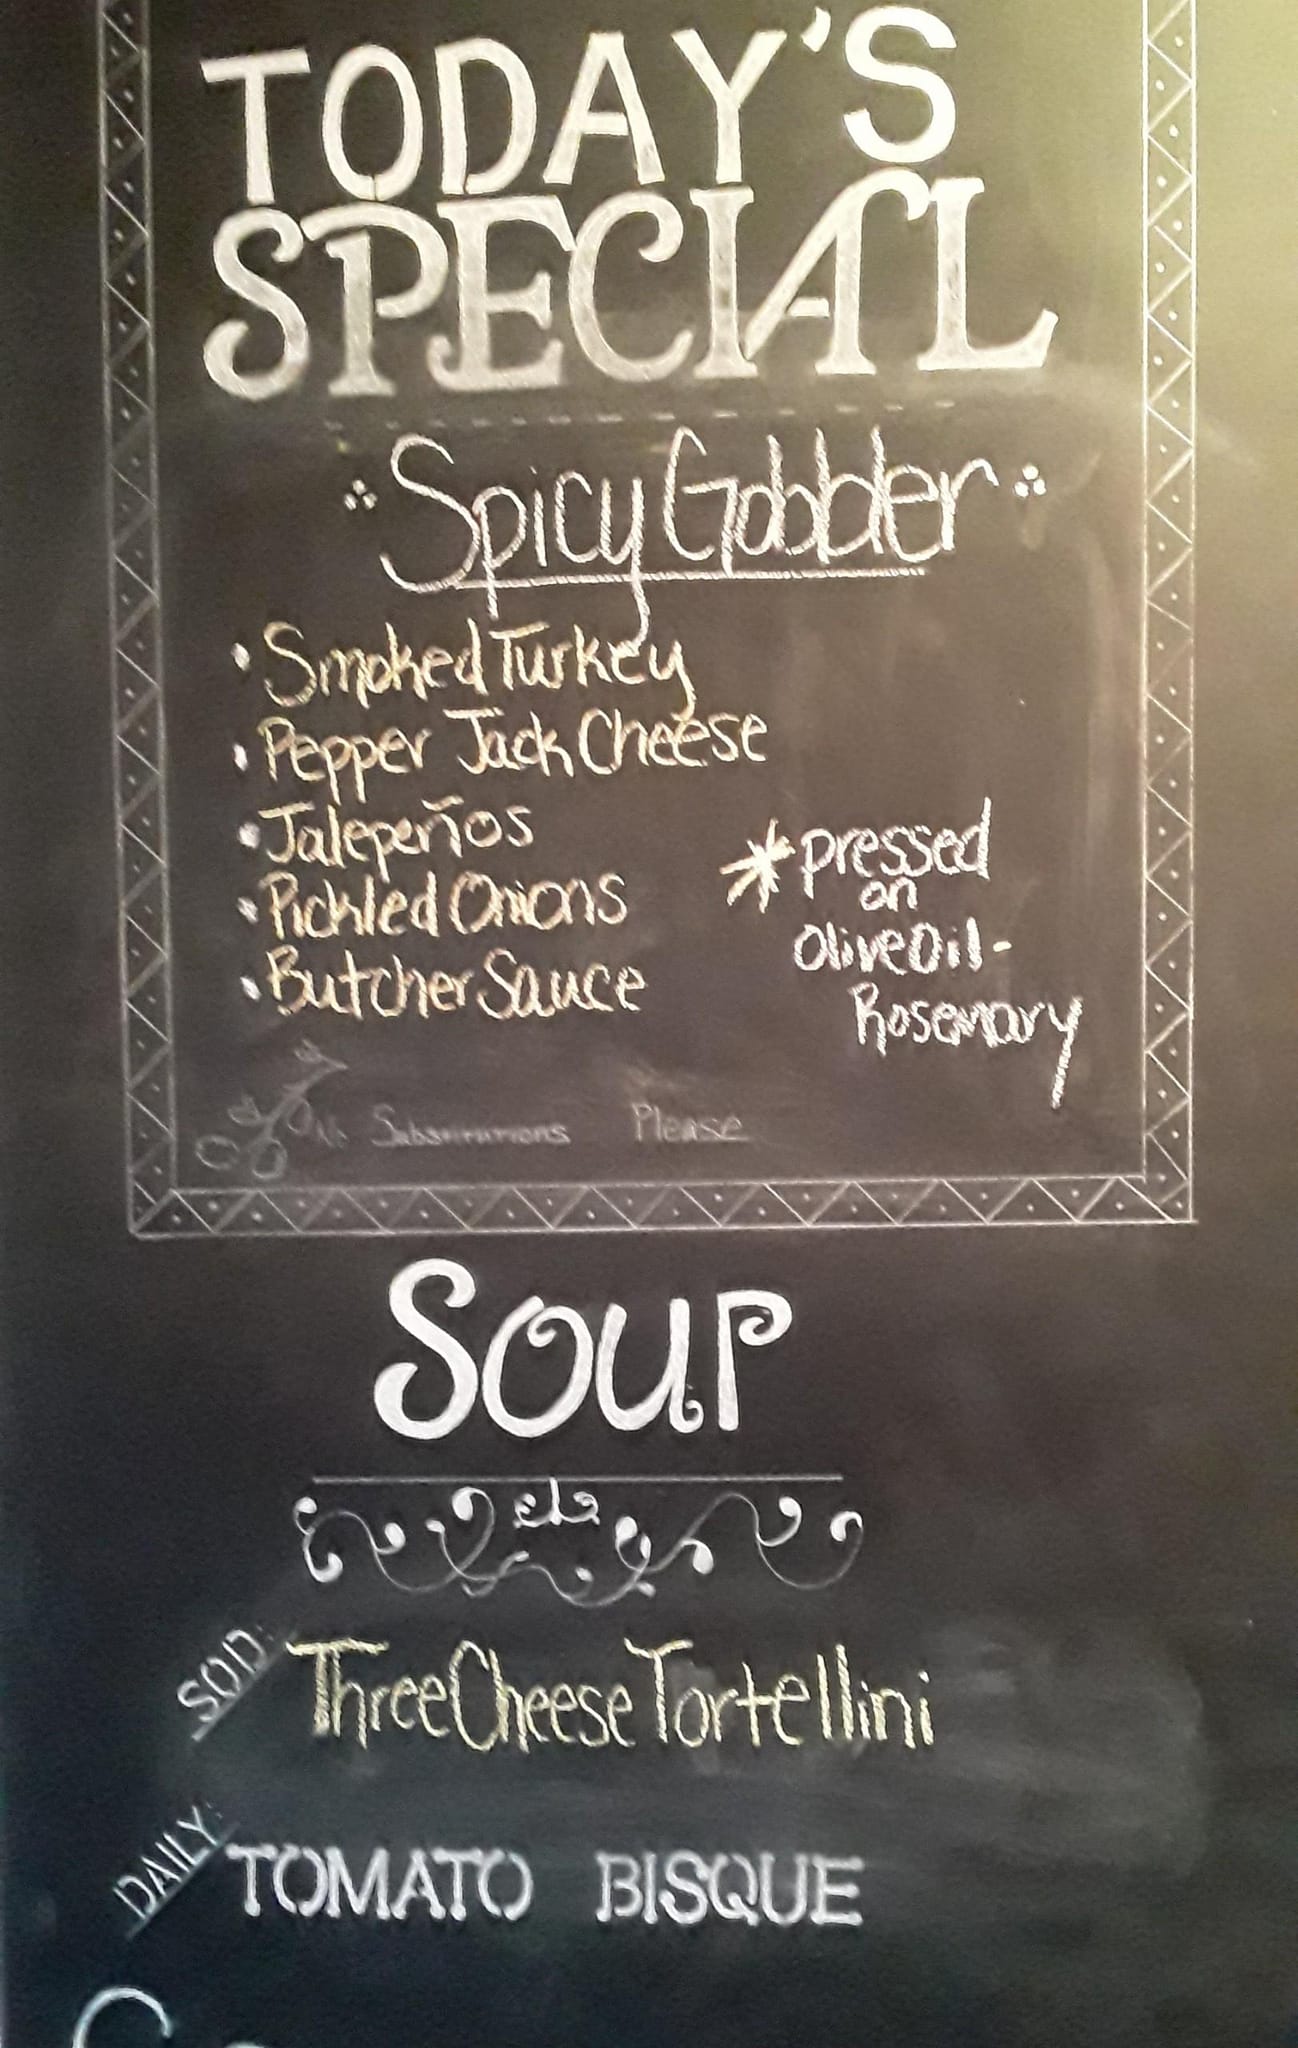 TODAY'S
SPECIAL
Spicy Gobbler
• Smoked Turkey
• Pepper Jack Cheese
• Jalepeños
• Pickled Onions
• Butcher Sauce
* pressed
on
Olive Oil-
Rosemary
No Substitutions Please
SOUP
SOD: Three Cheese Tortellini
DAILY: TOMATO BISQUE